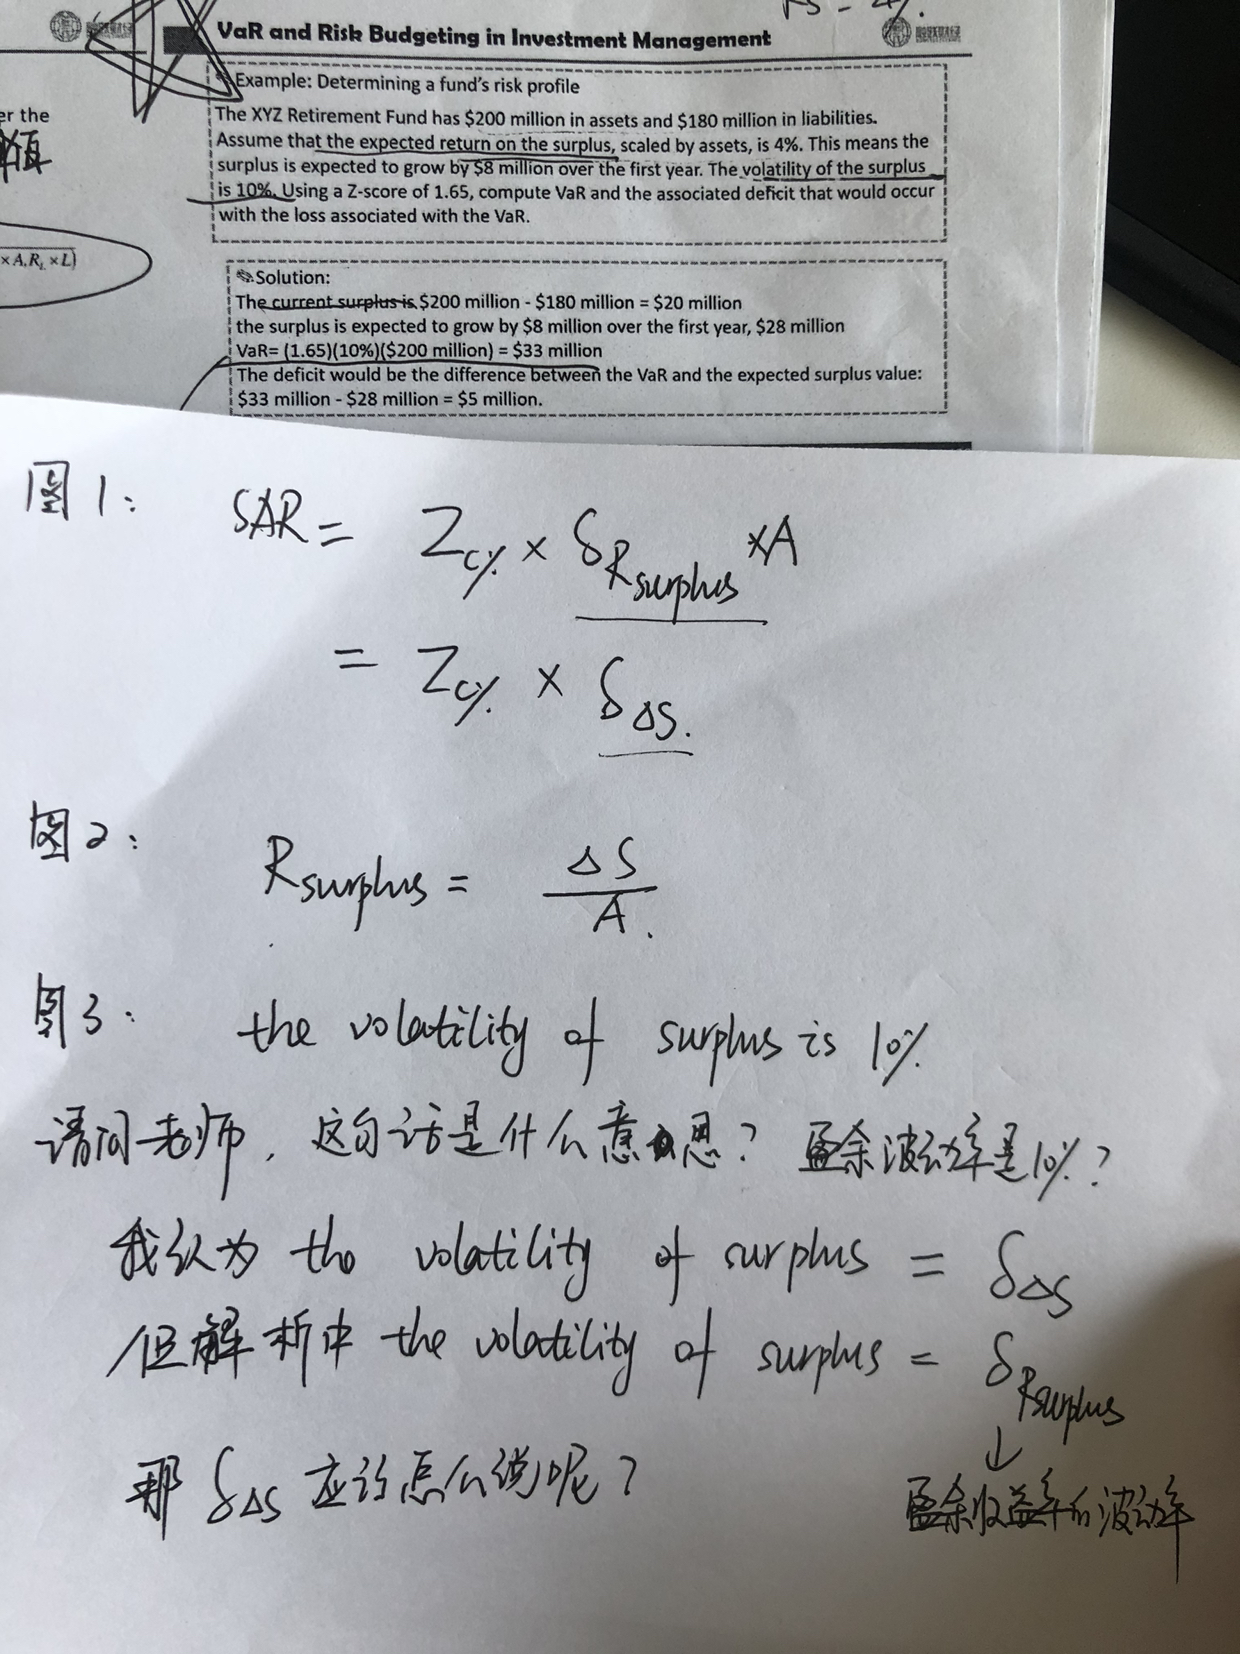 VaR and Risk Budgeting in Investment Management
Example: Determining a fund's risk profile
er the
The XYZ Retirement Fund has $200 million in assets and $180 million in liabilities.
Assume that the expected return on the surplus, scaled by assets, is 4%. This means the
surplus is expected to grow by $8 million over the first year. The volatility of the surplus
is 10%. Using a Z-score of 1.65, compute VaR and the associated deficit that would occur
with the loss associated with the VaR.
×A,R_L ×L)
Solution:
The current surplus is $200 million - $180 million = $20 million
the surplus is expected to grow by $8 million over the first year, $28 million
VaR= (1.65)(10%)($200 million) = $33 million
The deficit would be the difference between the VaR and the expected surplus value:
$33 million - $28 million = $5 million.
图1: SAR = Z_c% × δ_Rsurplus × A
= Z_c% × δ_ΔS.
图2: R_surplus = ΔS / A.
图3: the volatility of surplus is 10%
请问老师,这句话是什么意思? 盈余波动率是10%?
我认为 the volatility of surplus = δ_ΔS
但解析中 the volatility of surplus = δ_Rsurplus
↓
那 δ_ΔS 应该怎么说呢?
盈余收益率的波动率